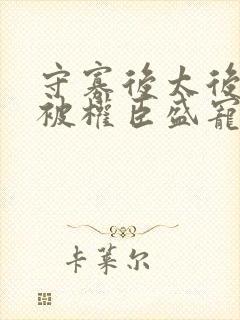 守寡後太後
被權臣盛寵
卡萊尔